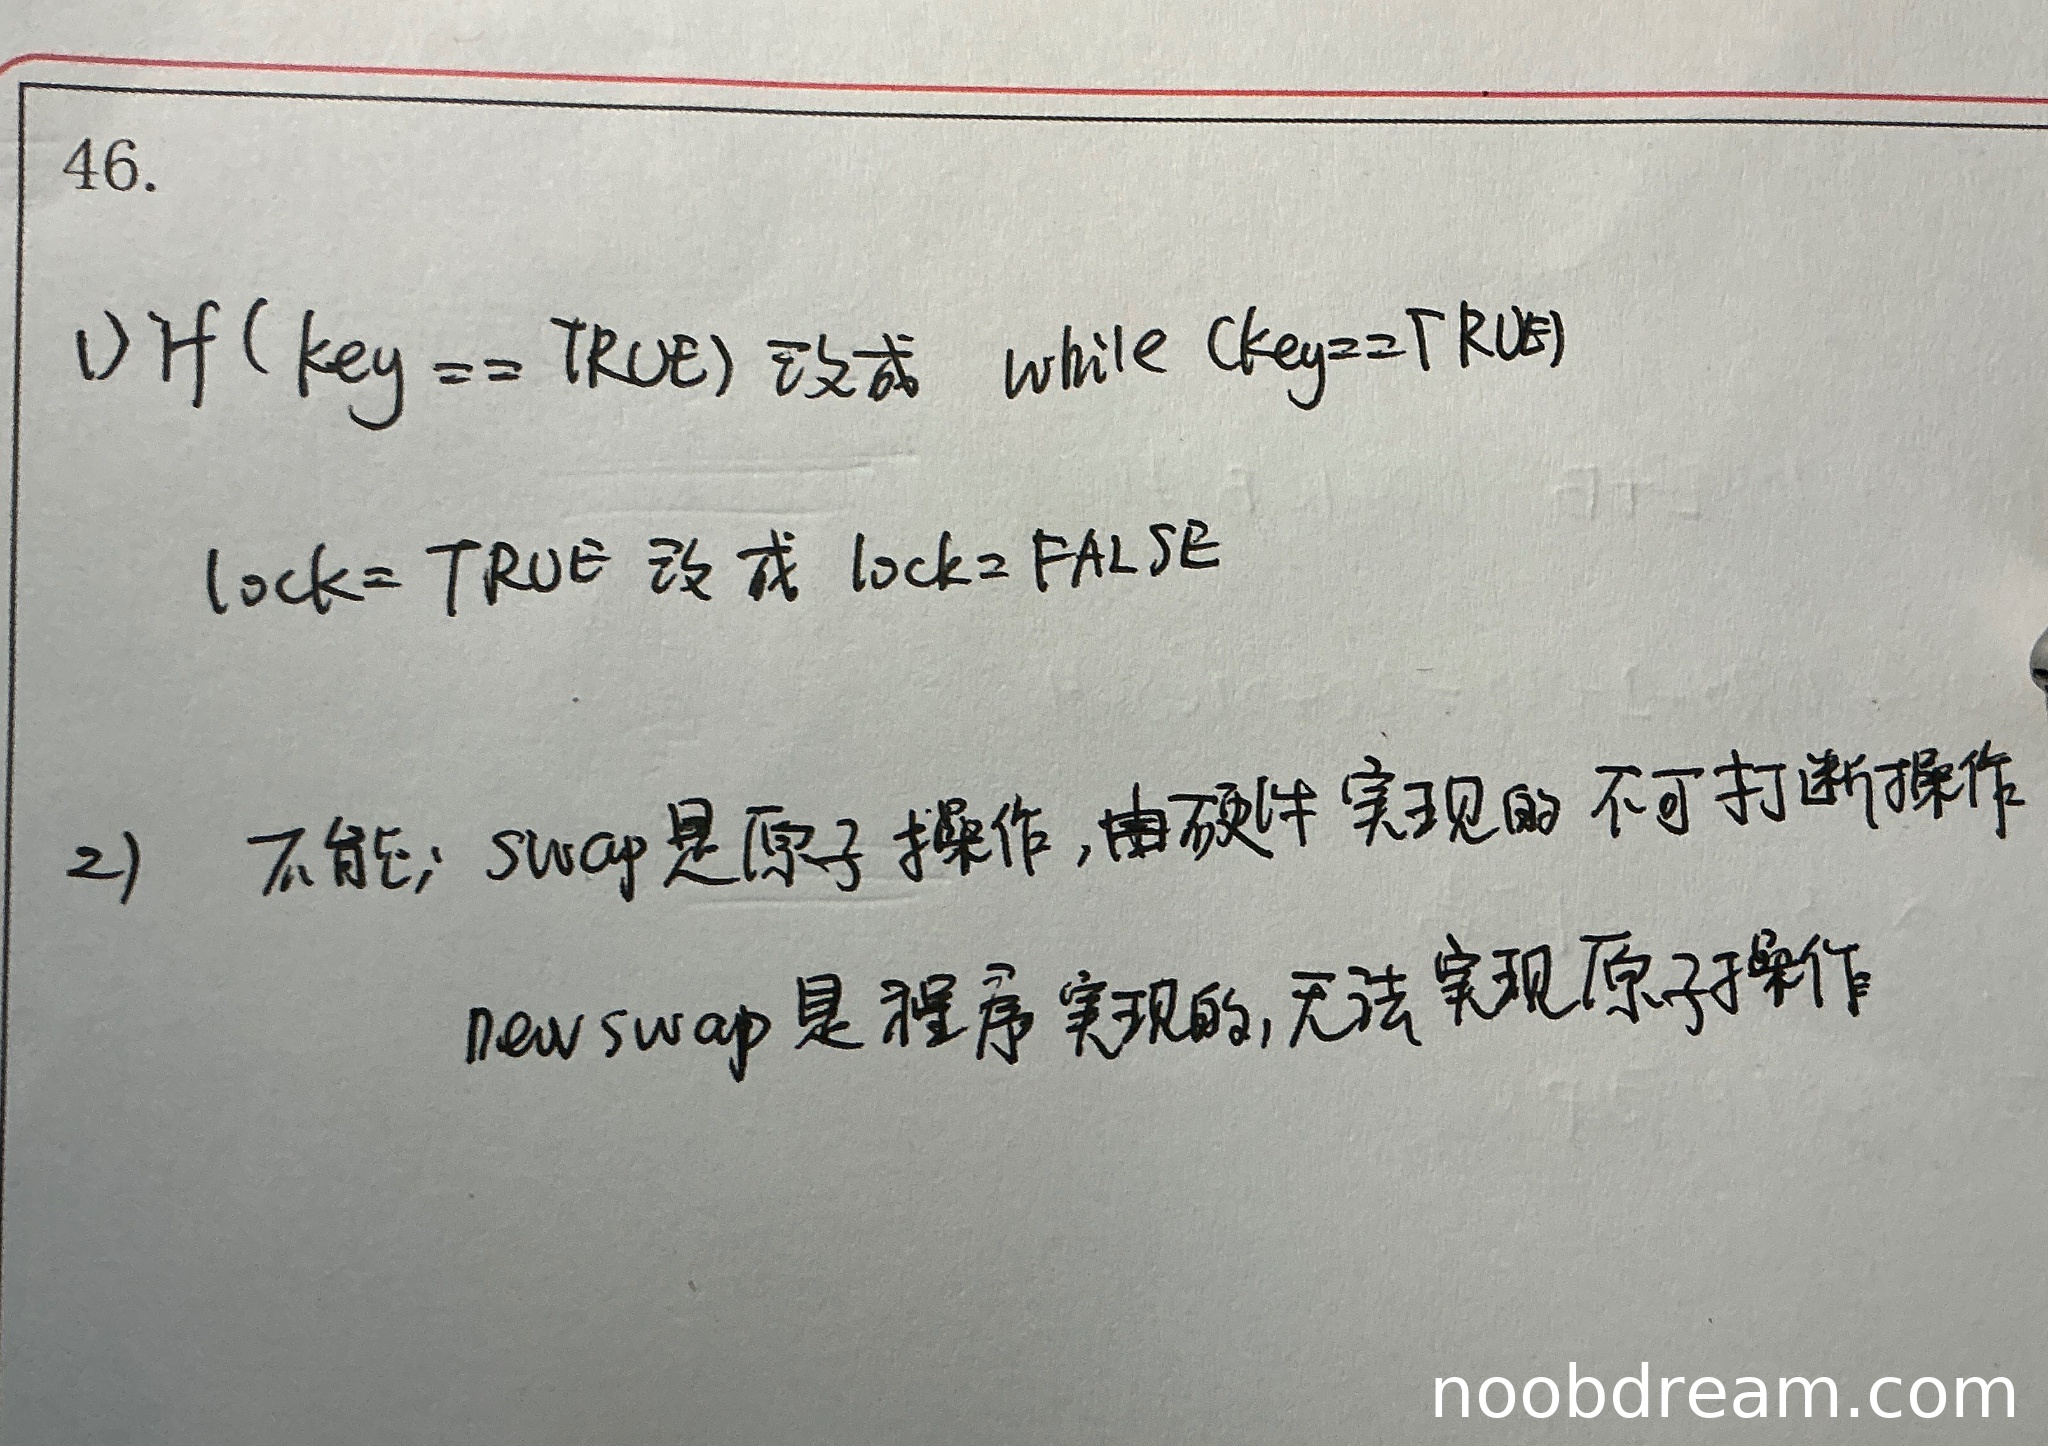 46.
1) if(key == TRUE) 改成 while (key==TRUE)
lock= TRUE 改成 lock=FALSE
2) 不能; swap是原子操作,由硬件实现的不可打断操作
newswap是程序实现的,无法实现原子操作
noobdream.com